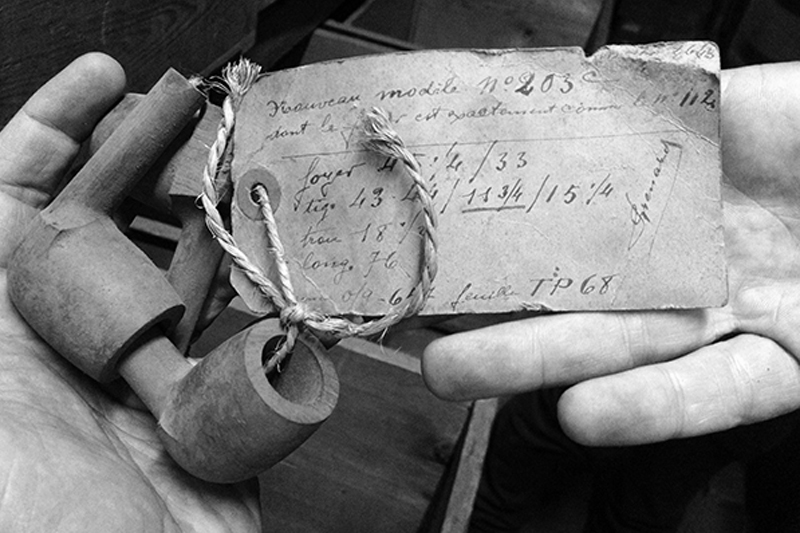 Nouveau modèle Nº 203 C
dont le foyer est exactement comme le nº 112
foyer 45 1/4 / 33
tige 43 - 44 / 15 3/4 / 15 1/4
trou 18
long. 76
0/9 - 6 feuille TP 68